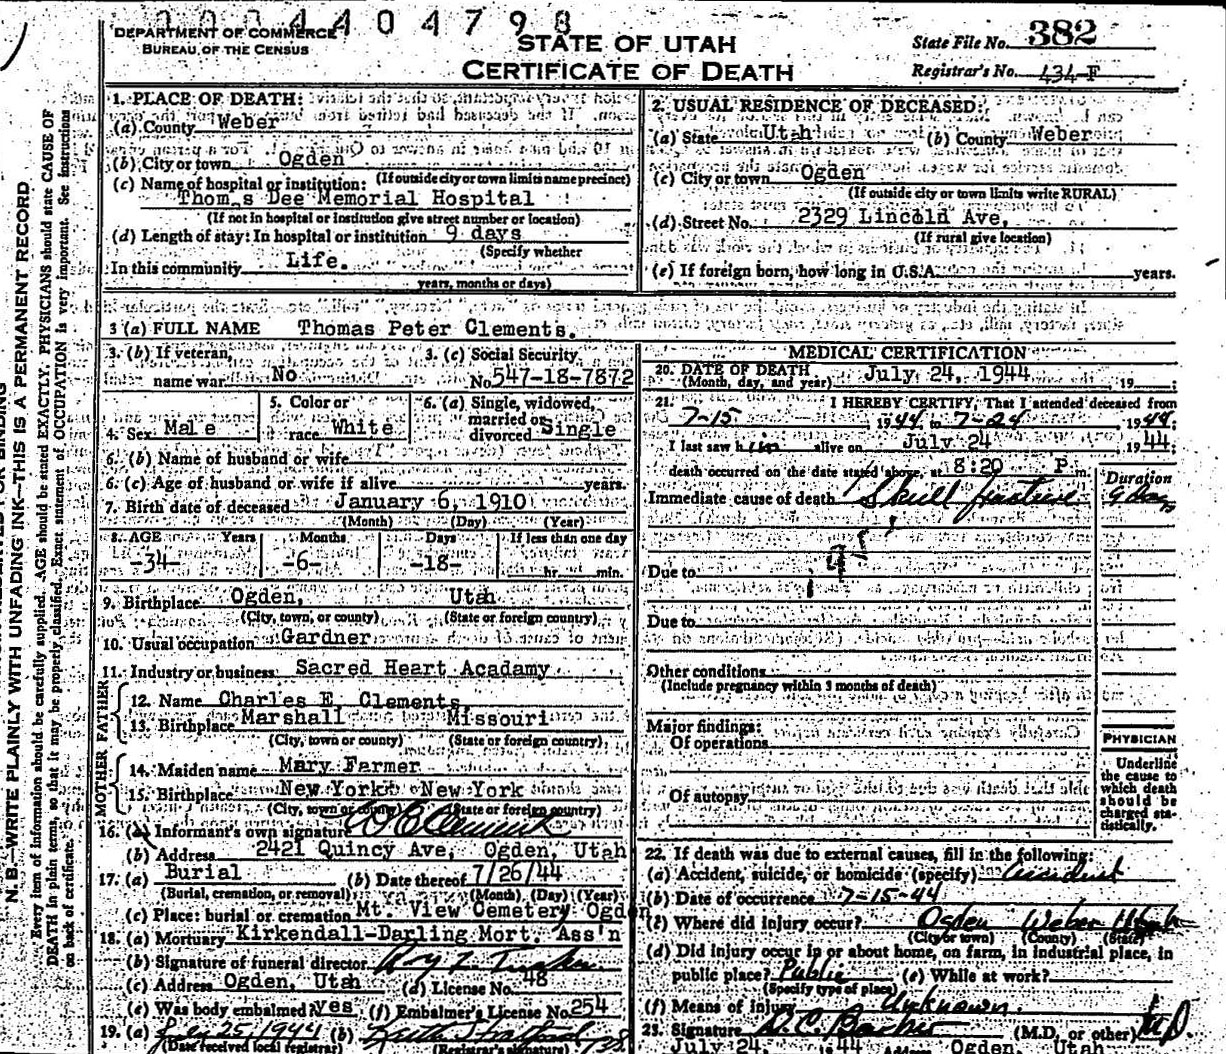 0004404798
DEPARTMENT OF COMMERCE
BUREAU OF THE CENSUS
STATE OF UTAH
CERTIFICATE OF DEATH
State File No. 382
Registrar's No. 434-F
N.B.—WRITE PLAINLY WITH UNFADING INK—THIS IS A PERMANENT RECORD
Every item of information should be carefully supplied. AGE should be stated EXACTLY. PHYSICIANS should state CAUSE OF
DEATH in plain terms, so that it may be properly classified. Exact statement of OCCUPATION is very important. See instructions
on back of certificate.
1. PLACE OF DEATH:
(a) County Weber
(b) City or town Ogden
(If outside city or town limits name precinct)
(c) Name of hospital or institution:
Thom_s Dee Memorial Hospital
(If not in hospital or institution give street number or location)
(d) Length of stay: In hospital or institution 9 days
(Specify whether
In this community Life.
years, months or days)
2. USUAL RESIDENCE OF DECEASED:
(a) State Utah (b) County Weber
(c) City or town Ogden
(If outside city or town limits write RURAL)
(d) Street No. 2329 Lincold Ave,
(If rural give location)
(e) If foreign born, how long in U.S.A. years.
3 (a) FULL NAME Thomas Peter Clements.
3. (b) If veteran, name war No
3. (c) Social Security No 547-18-7872
4. Sex Male
5. Color or race White
6. (a) Single, widowed, married or divorced Single
6. (b) Name of husband or wife
6. (c) Age of husband or wife if alive years.
7. Birth date of deceased January 6, 1910
(Month) (Day) (Year)
8. AGE Years Months Days If less than one day
-34- -6- -18- hr. min.
9. Birthplace Ogden, Utah
(City, town, or county) (State or foreign country)
10. Usual occupation Gardner
11. Industry or business Sacred Heart Acadamy
FATHER
12. Name Charles E. Clements
13. Birthplace Marshall Missouri
(City, town or county) (State or foreign country)
MOTHER
14. Maiden name Mary Farmer
15. Birthplace New York New York
(City, town or county) (State or foreign country)
16. (a) Informant's own signature C E Clements
(b) Address 2421 Quincy Ave, Ogden, Utah
17. (a) Burial (b) Date thereof 7/26/44
(Burial, cremation, or removal) (Month) (Day) (Year)
(c) Place: burial or cremation Mt. View Cemetery Ogden
18. (a) Mortuary Kirkendall-Darling Mort. Ass'n
(b) Signature of funeral director
(c) Address Ogden, Utah (d) License No. 48
(e) Was body embalmed? yes (f) Embalmer's License No. 254
19. (a) July 25, 1944 (b)
(Date received local registrar) (Registrar's signature)
MEDICAL CERTIFICATION
20. DATE OF DEATH July 24, 1944 19
(Month, day, and year)
21. I HEREBY CERTIFY, That I attended deceased from
7-15 1944 to 7-24 1944;
I last saw him alive on July 24 1944;
death occurred on the date stated above, at 8:20 P m.
Duration
Immediate cause of death Skull fracture 9 days
Due to
Due to
Other conditions
(Include pregnancy within 3 months of death)
Major findings:
Of operations
Of autopsy
PHYSICIAN
Underline
the cause to
which death
should be
charged sta-
tistically.
22. If death was due to external causes, fill in the following:
(a) Accident, suicide, or homicide (specify) Accident
(b) Date of occurrence 7-15-44
(c) Where did injury occur? Ogden Weber Utah
(City or town) (County) (State)
(d) Did injury occur in or about home, on farm, in industrial place, in
public place? Public (e) While at work?
(Specify type of place)
(f) Means of injury Unknown.
23. Signature (M.D. or other) M D
July 24, 1944 Address Ogden Utah